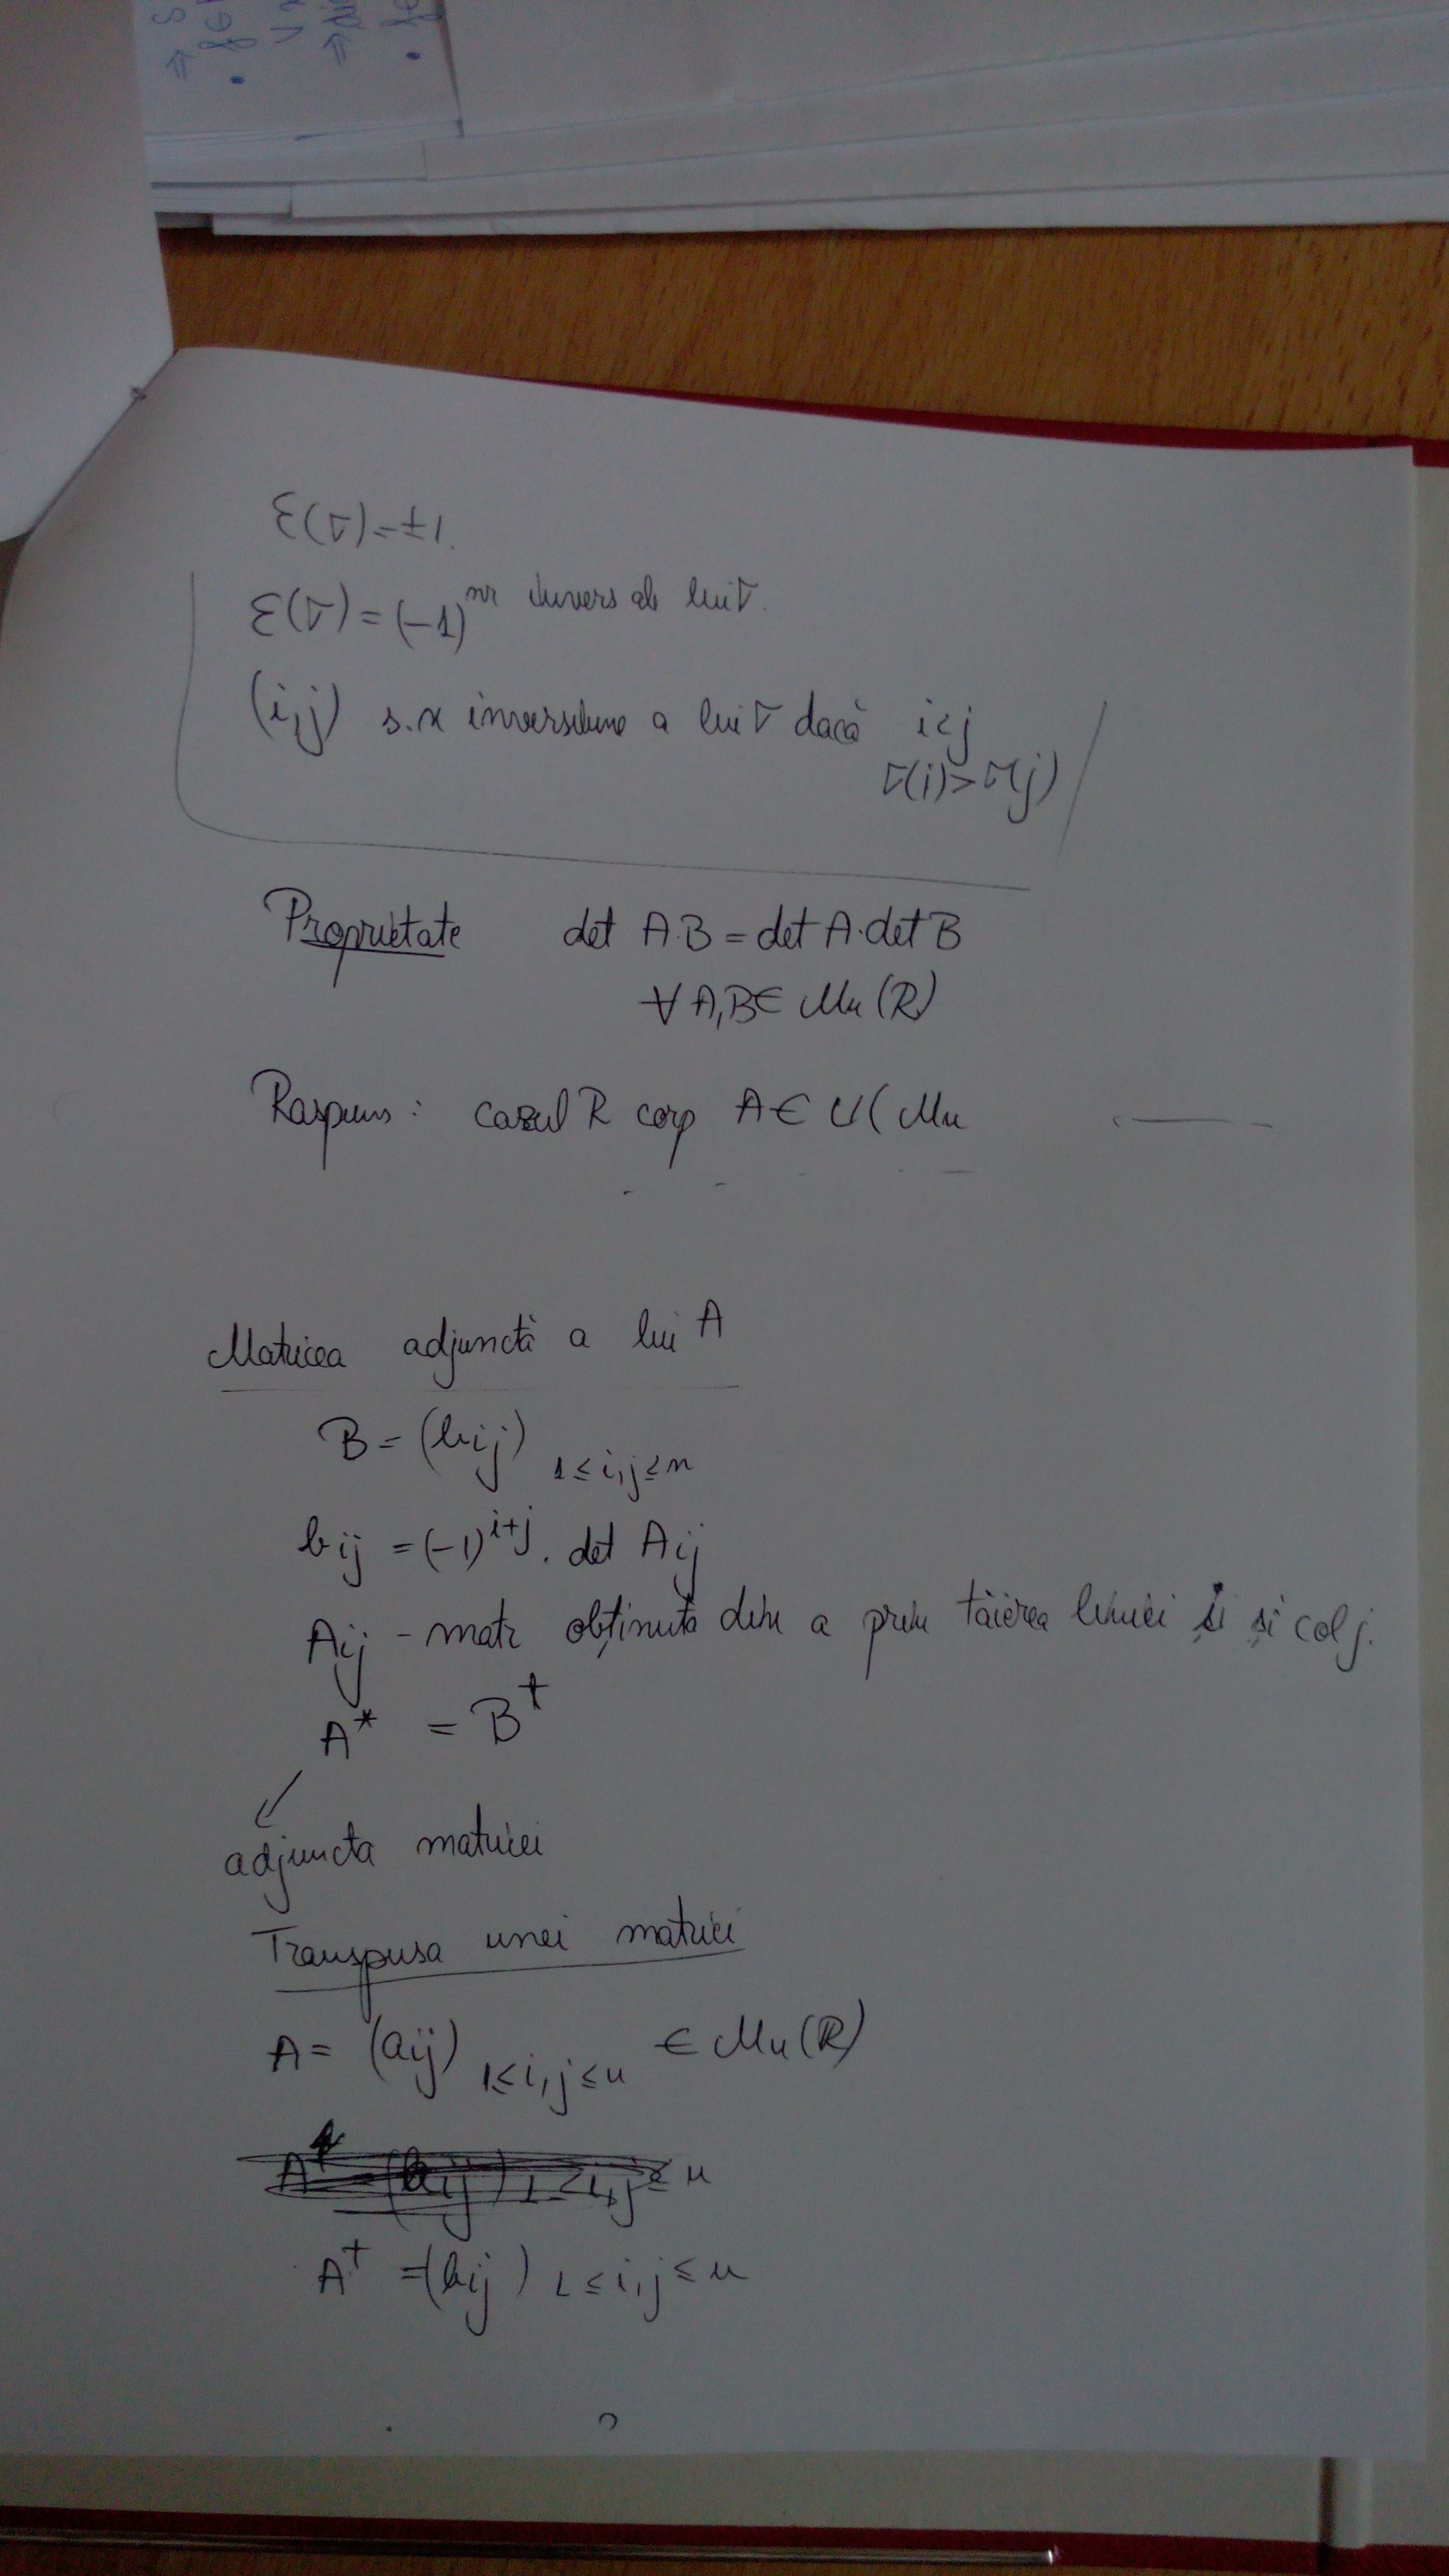 ε(σ)=±1.
ε(σ)=(-1)^nr invers ale lui σ.
(i,j) s.n inversiune a lui σ dacă i<j
σ(i)>σ(j)
Proprietate det A·B = det A·det B
∀ A,B∈ Mn(R)
Raspuns : cazul R corp A∈ U(Mn
Matricea adjunctă a lui A
B = (bij) 1≤i,j≤n
bij = (-1)^i+j · det Aij
Aij - matr obținută din a prin tăierea liniei i și col j.
A* = B^t
adjuncta matricei
Transpusa unei matrici
A = (aij) 1≤i,j≤n ∈ Mn(R)
A^t =(bij) 1≤i,j≤n